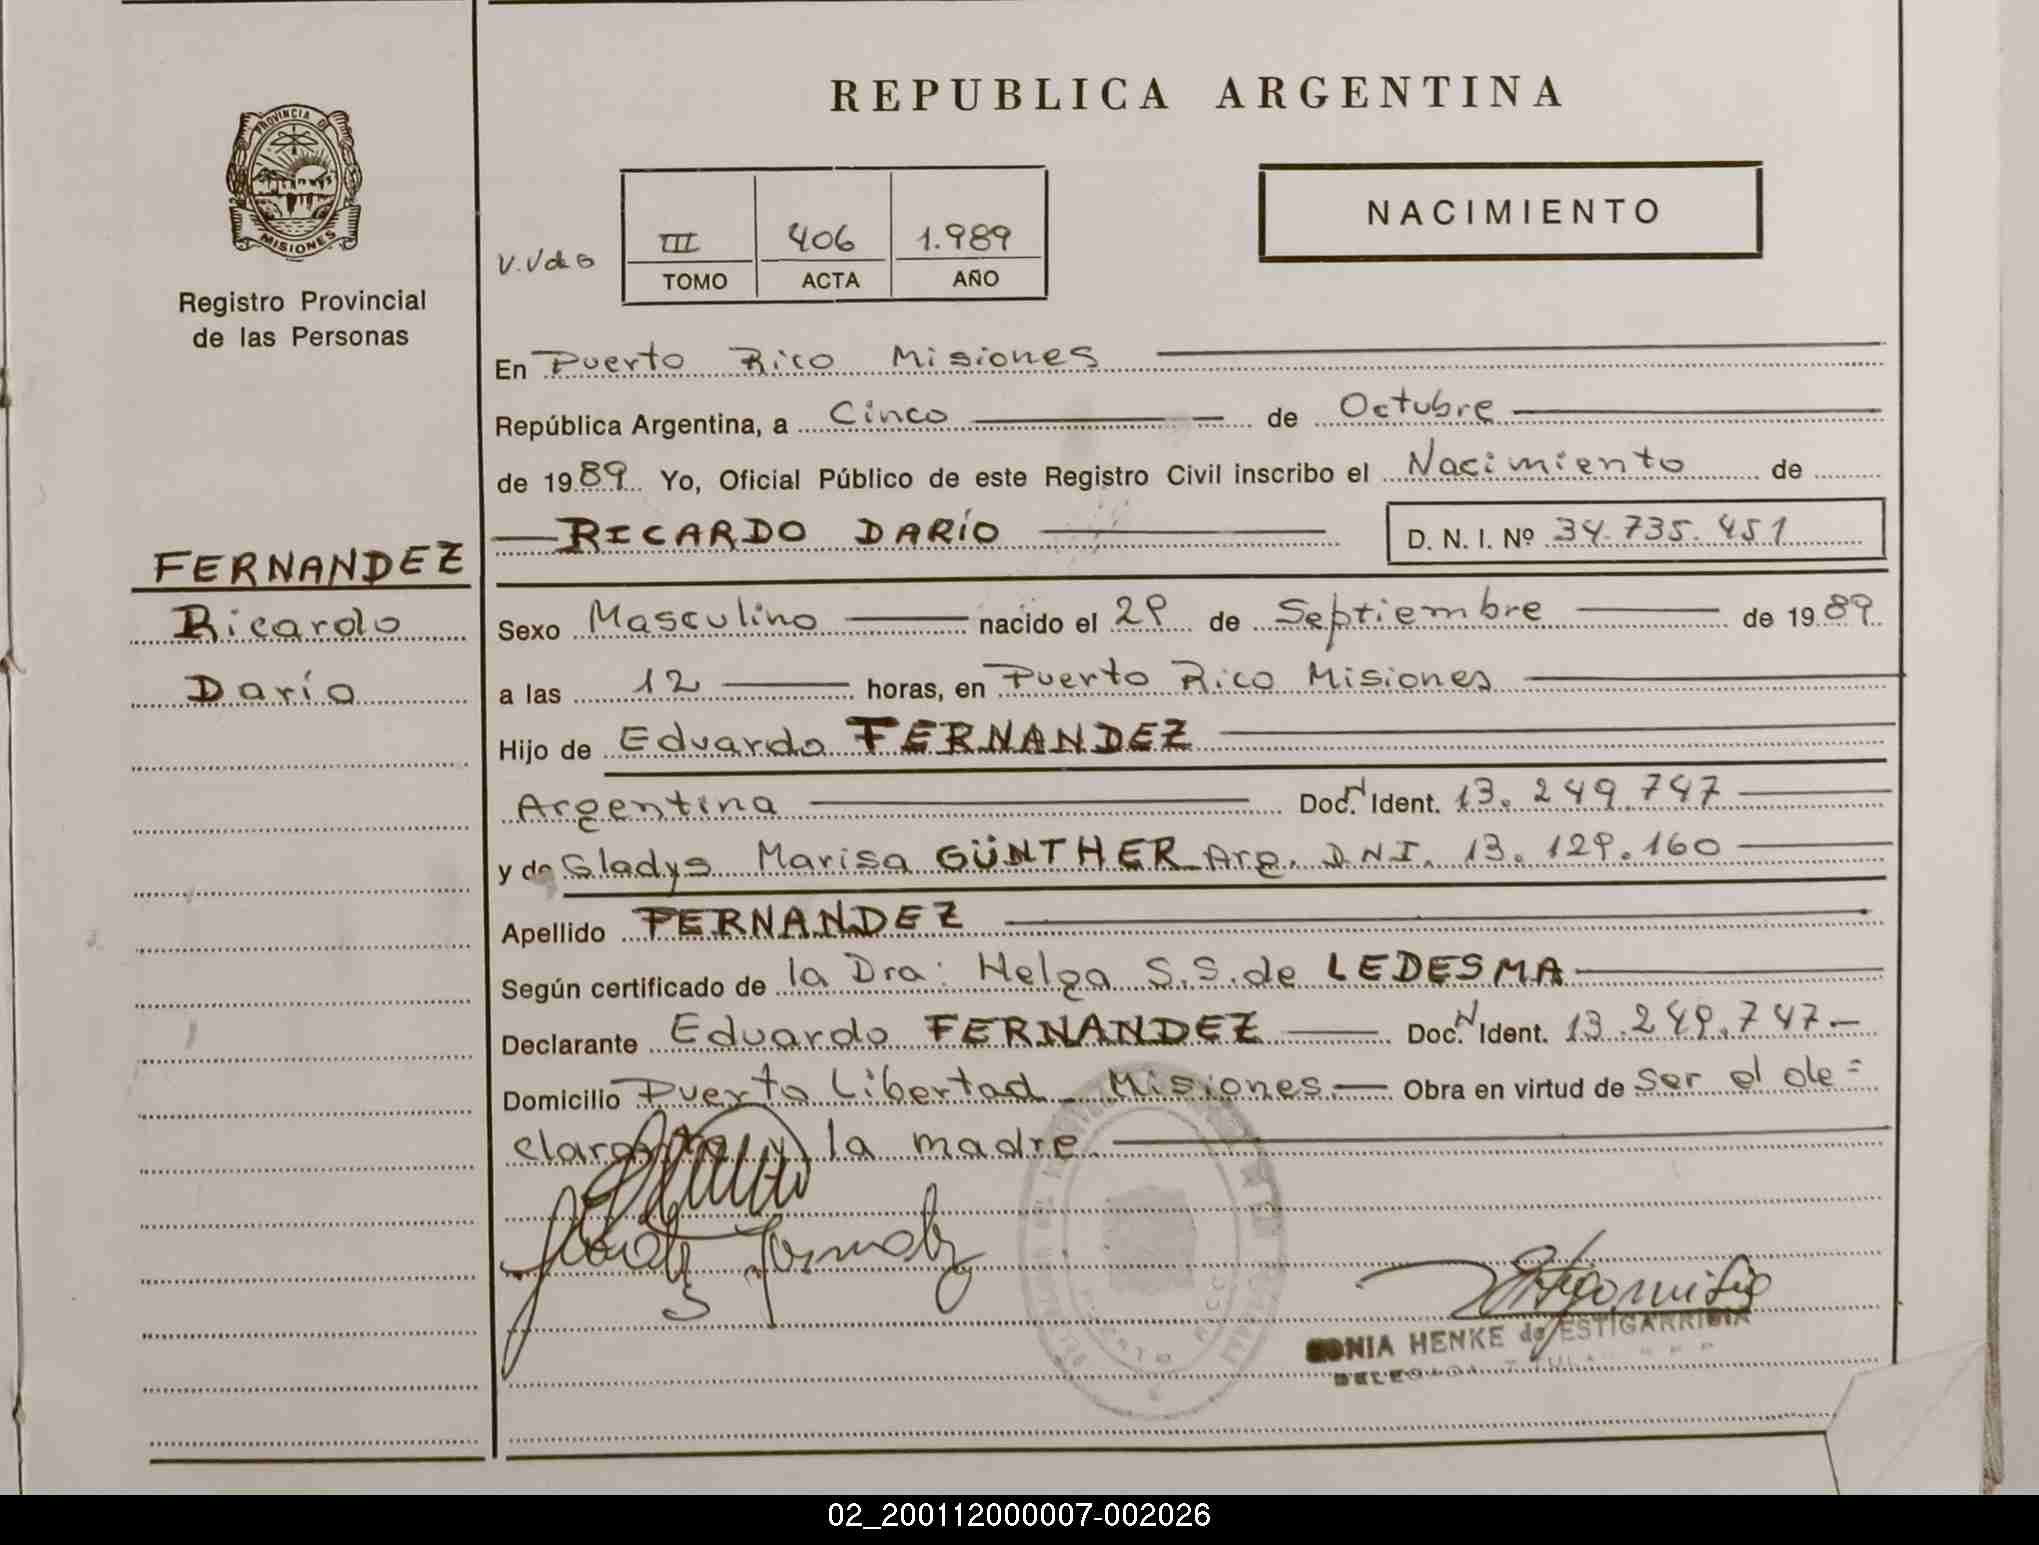 REPUBLICA ARGENTINA
PROVINCIA DE
MISIONES
Registro Provincial
de las Personas
NACIMIENTO
III 406 1.989
TOMO ACTA AÑO
En Puerto Rico Misiones
República Argentina, a Cinco de Octubre
de 1989 Yo, Oficial Público de este Registro Civil inscribo el Nacimiento de
RICARDO DARÍO D. N. I. Nº 34.735.451
FERNANDEZ
Ricardo
Darío
Sexo Masculino nacido el 29 de Septiembre de 1989
a las 12 horas, en Puerto Rico Misiones
Hijo de Eduardo FERNANDEZ
Argentina Doc. N Ident. 13.249.747
y de Gladys Marisa GÜNTHER Arg. D.N.I. 13.129.160
Apellido FERNANDEZ
Según certificado de la Dra: Helga S.S. de LEDESMA
Declarante Eduardo FERNANDEZ Doc. N Ident. 13.249.747.-
Domicilio Puerto Libertad Misiones.- Obra en virtud de ser el de=
clarante y la madre.
SONIA HENKE de ESTIGARRIBIA
02_200112000007-002026